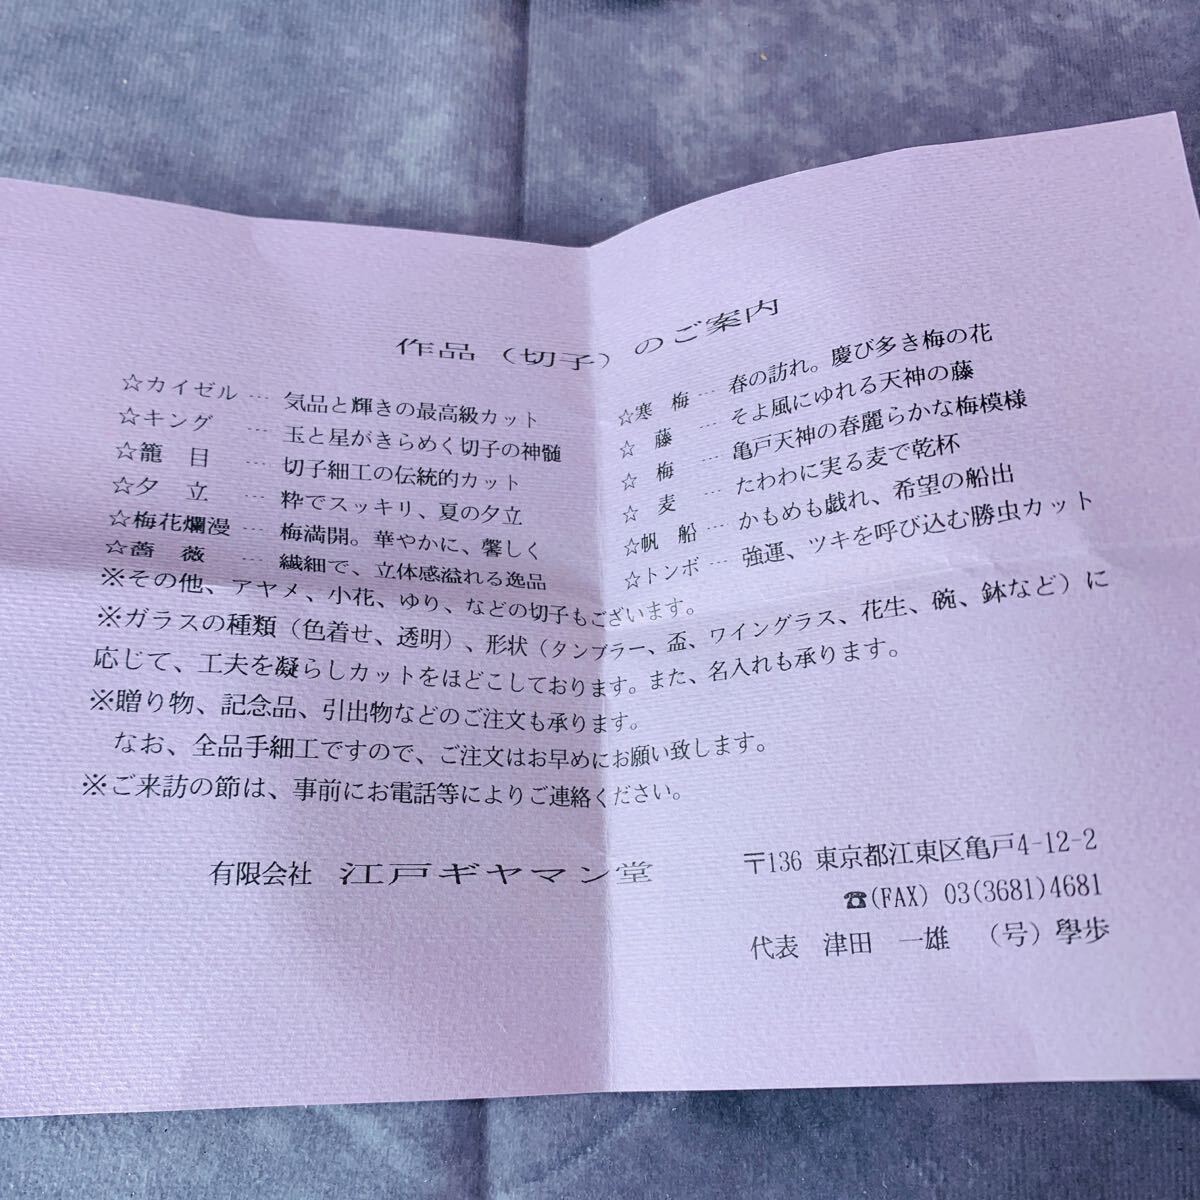 作品（切子）のご案内
☆カイゼル … 気品と輝きの最高級カット
☆キング … 玉と星がきらめく切子の神髄
☆籠目 … 切子細工の伝統的カット
☆夕立 … 粋でスッキリ、夏の夕立
☆梅花爛漫 … 梅満開。華やかに、馨しく
☆薔薇 … 繊細で、立体感溢れる逸品
☆寒梅 … 春の訪れ。慶び多き梅の花
☆藤 … そよ風にゆれる天神の藤
☆梅 … 亀戸天神の春麗らかな梅模様
☆麦 … たわわに実る麦で乾杯
☆帆船 … かもめも戯れ、希望の船出
☆トンボ … 強運、ツキを呼び込む勝虫カット
※その他、アヤメ、小花、ゆり、などの切子もございます。
※ガラスの種類（色着せ、透明）、形状（タンブラー、盃、ワイングラス、花生、碗、鉢など）に
応じて、工夫を凝らしカットをほどこしております。また、名入れも承ります。
※贈り物、記念品、引出物などのご注文も承ります。
なお、全品手細工ですので、ご注文はお早めにお願い致します。
※ご来訪の節は、事前にお電話等によりご連絡ください。
有限会社 江戸ギヤマン堂
〒136 東京都江東区亀戸4-12-2
☎(FAX) 03(3681)4681
代表 津田 一雄 （号）學歩